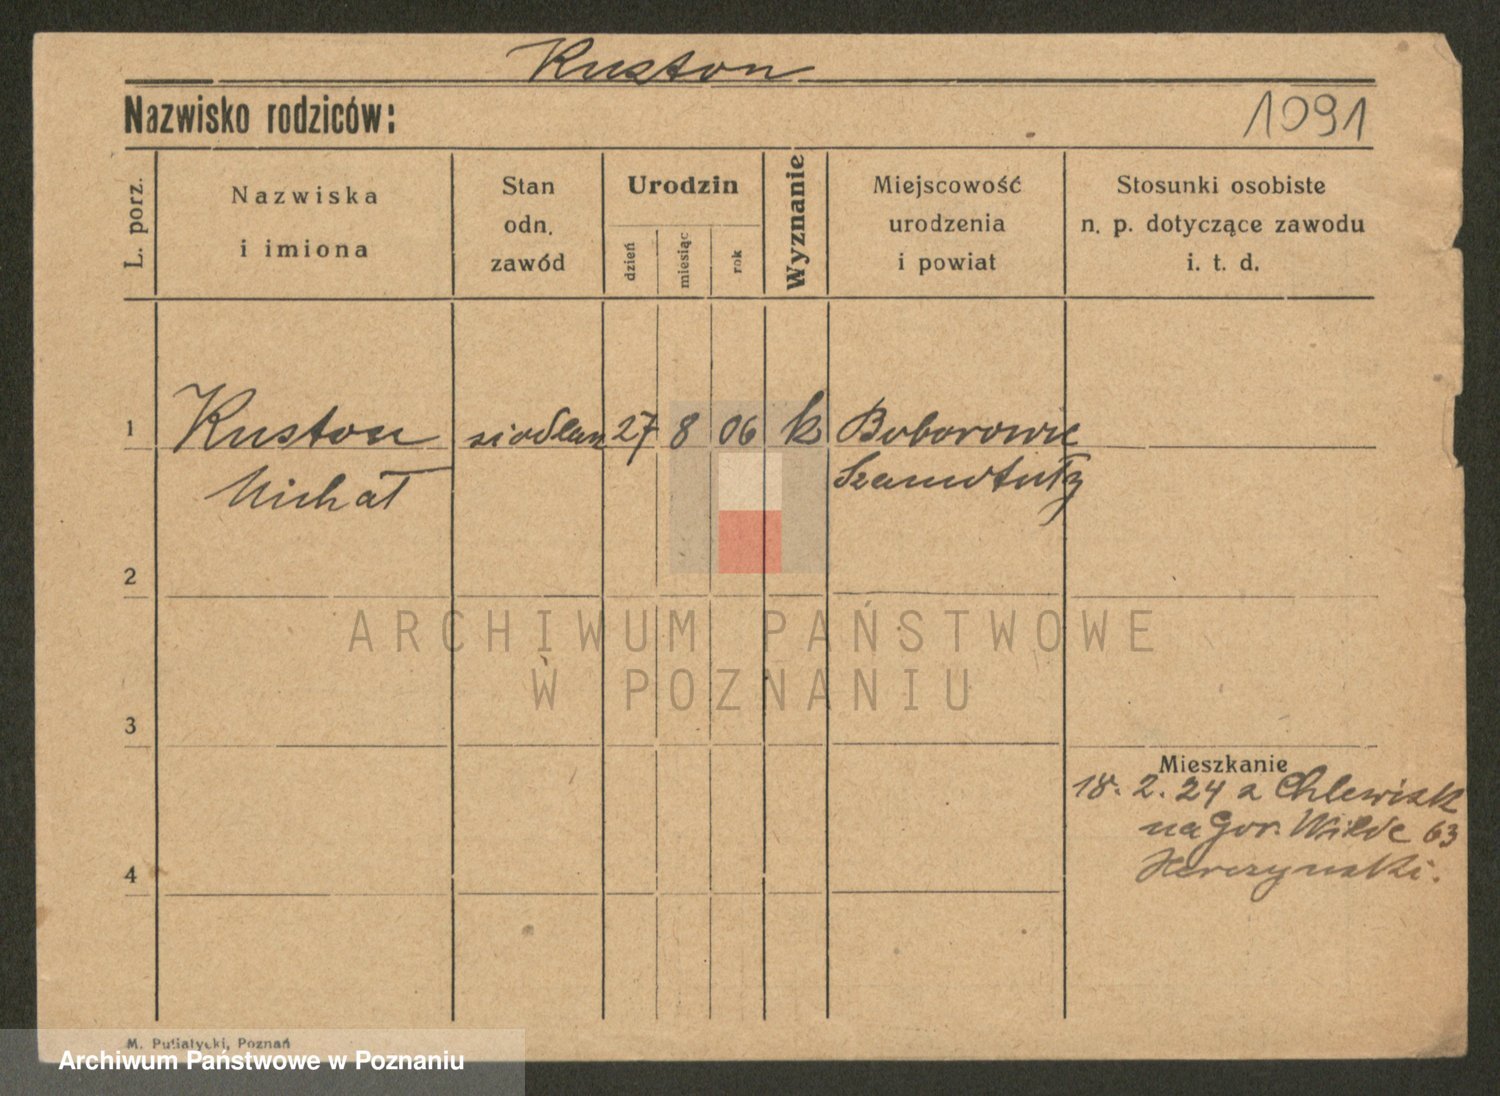 Kuston
Nazwisko rodziców:
1091
L. porz.
Nazwiska
i imiona
Stan
odn.
zawód
Urodzin
dzień
miesiąc
rok
Wyznanie
Miejscowość
urodzenia
i powiat
Stosunki osobiste
n. p. dotyczące zawodu
i. t. d.
1
Kuston
siodlarz
27
8
06
k
Boborowie
Michał
Szamotuły
2
ARCHIWUM PAŃSTWOWE
W POZNANIU
3
Mieszkanie
18. 2. 24 z Chlewisk
na Gór. Wilde 63
4
M. Putiatycki, Poznań
Archiwum Państwowe w Poznaniu